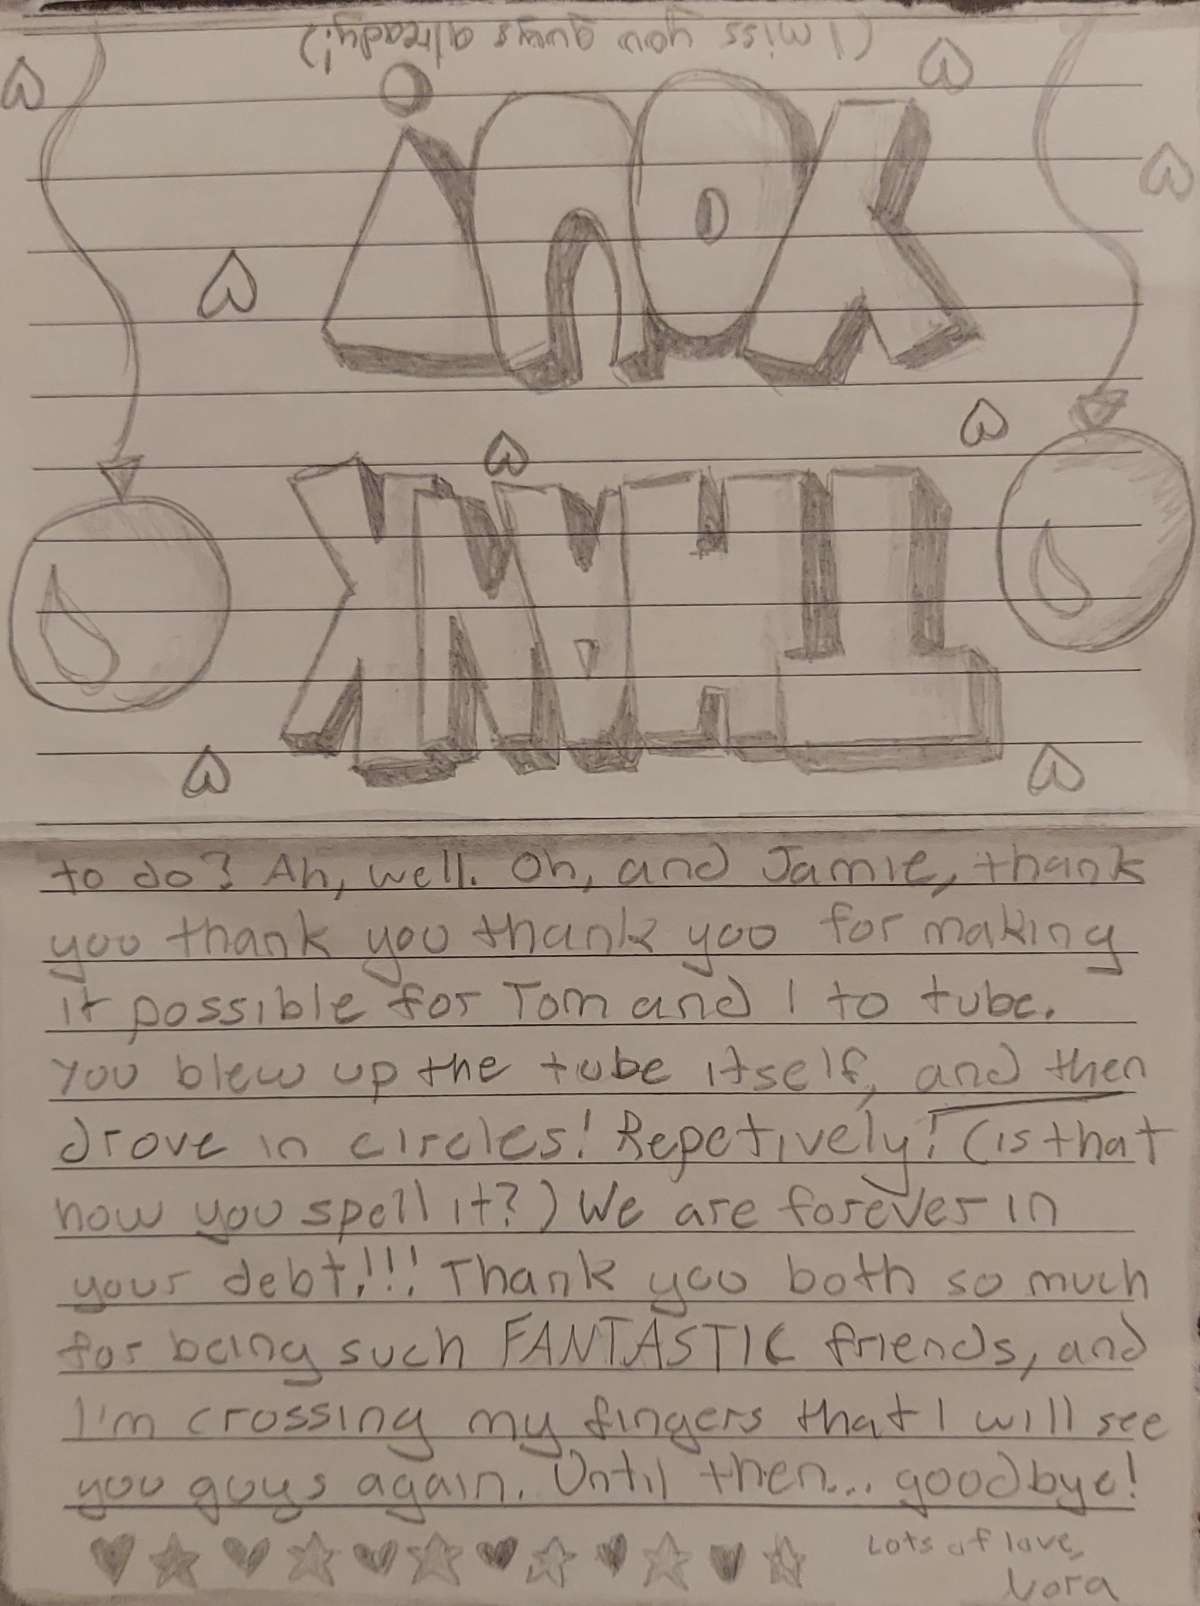 THANK
YOU!
(I miss you guys already!)
to do? Ah, well. Oh, and Jamie, thank
you thank you thank you for making
it possible for Tom and I to tube.
You blew up the tube itself, and then
drove in circles! Repetively! (is that
how you spell it?) We are forever in
your debt!!! Thank you both so much
for being such FANTASTIC friends, and
I'm crossing my fingers that I will see
you guys again. Until then... goodbye!
Lots of love,
Nora